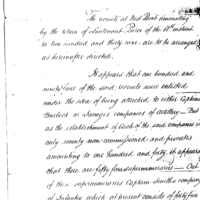 The recruits at West Point amounting
by the return of Lieutenant Pierce of the 18th instant
to two hundred and thirty nine, are to be arranged
as hereinafter directed.
It appears that one hundred and
ninety four of the said recruits were enlisted
under the idea of being attached to either Captains
Burbeck or Savage's companies of artillery — But
as the establishment of each of the said companies is
only seventy non-commissioned and privates
amounting to one hundred and forty, it appears
that there are fifty four supernumeraries — Out
of these supernumeraries Captain Smith's company
of Infantry which at present consists of fifty four